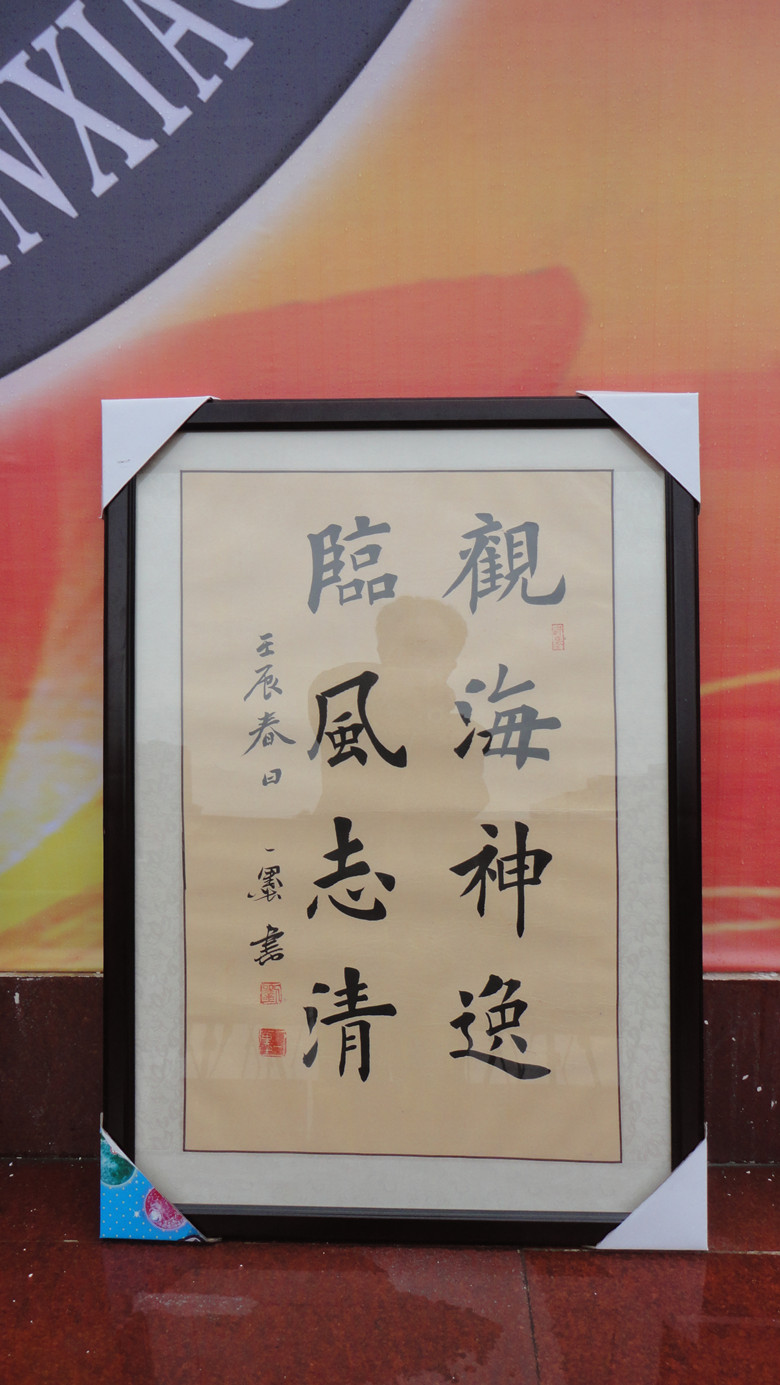 觀海神逸
臨風志清
壬辰春日一墨書
NXIA